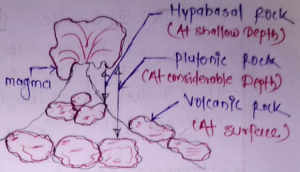 Hypabasal Rock
(At shallow Depth)
Plutonic Rock
(At considerable Depth)
magma
Volcanic Rock
(At surface)